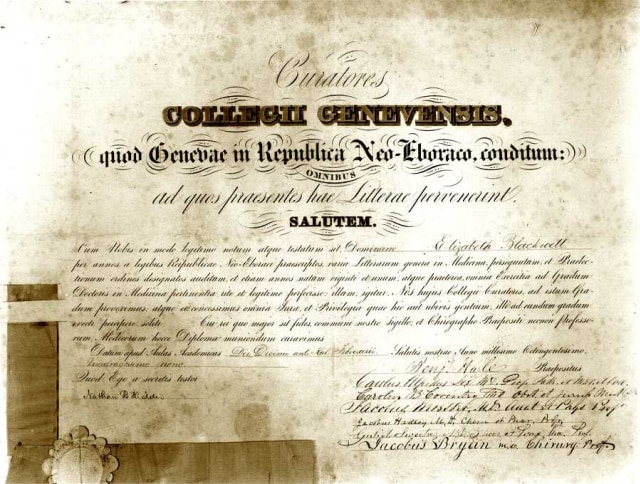 Curatores
COLLEGII GENEVENSIS,
quod Genevae in Republica Neo-Eboraco, conditum:
OMNIBUS
ad quos praesentes hae Litterae pervenerint.
SALUTEM.
Cum Nobis in modo legitimo notum atque testatum sit Elizabeth Blackwell
per annos a legibus Reipublicae Neo-Eboraci praescriptos, varia Litterarum genera in Medicina, persequutam, et Praelec-
tionum ordines designatos auditam, et etiam annos natam viginti et unam, atque praeterea, omnia Exercitia ad Gradum
Doctoris in Medicina pertinentia rite et legitime perfecisse: illam, igitur, Nos hujus Collegii Curatores, ad istum Gra-
dum provexinus, atque et concessimus omnia Jura, et Privilegia quae hic aut ubivis gentium, ad eundum gradum
evecti percipere solite Cui re quo major sit fides, communi nostro sigillo, et Chirographo Praepositi necnon Professo-
rum Medicorum hocce Diploma muniendum curavimus
Datum apud Aulas Academicas Die Decimo ante Salutis nostrae Anno millesimo Octengentesimo
nono Benj. Hale Praepositus
Quod Ego a secretis testor
Jacobus Hadley M.D. Chem et Phar. Prof.
Jacobus Bryan M.D. Chirurg. Prof.